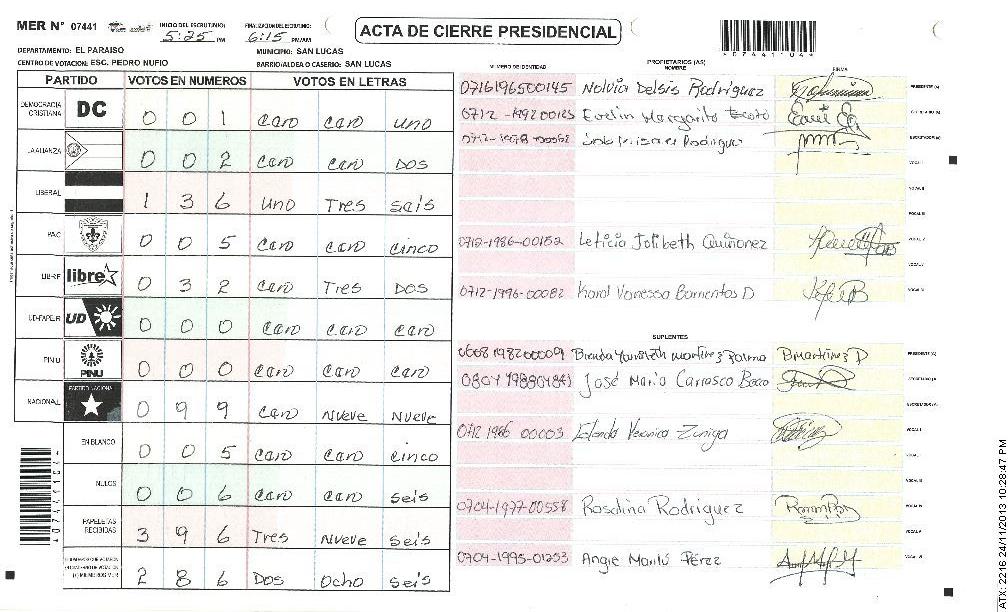 MER N° 07441 INICIO DEL ESCRUTINIO: 5:25 PM FINALIZACION DEL ESCRUTINIO: 6:15 PM/AM
ACTA DE CIERRE PRESIDENCIAL
DEPARTAMENTO: EL PARAISO MUNICIPIO: SAN LUCAS
CENTRO DE VOTACION: ESC. PEDRO NUFIO BARRIO/ALDEA O CASERIO: SAN LUCAS
PARTIDO VOTOS EN NUMEROS VOTOS EN LETRAS
DEMOCRACIA CRISTIANA DC 0 0 1 cero cero uno
LA ALIANZA 0 0 2 cero cero Dos
LIBERAL 1 3 6 uno Tres seis
PAC 0 0 5 cero cero cinco
LIBRE libre 0 3 2 cero Tres Dos
UD-FAPER UD 0 0 0 cero cero cero
PINU PINU 0 0 0 cero cero cero
NACIONAL PARTIDO NACIONAL 0 9 9 cero Nueve Nueve
EN BLANCO 0 0 5 cero cero cinco
NULOS 0 0 6 cero cero seis
PAPELETAS RECIBIDAS 3 9 6 Tres Nueve seis
2 8 6 Dos ocho seis
PROPIETARIOS (AS)
NUMERO DE IDENTIDAD NOMBRE FIRMA
0716196500145 Nolvia Delsis Rodriguez PRESIDENTE (A)
0712-199200125 Evelin Margarito
0712-1978-00552 Rodriguez
VOCAL I
VOCAL II
VOCAL III
0712-1986-00152 Leticia Jolibeth Quiñonez
0712-1996-00082 Karol Vanessa Barrientos D
SUPLENTES
Brenda Martinez Bmartinez D PRESIDENTE (A)
José Maria Carrasco SECRETARIO (A)
0712 1986 00003 Veronica Zuniga VOCAL I
0704-1977-00558 Rosalina Rodriguez
0704-1995-01253 Angie Pérez
07441101
ATX: 2216 24/11/2013 10:28:47 PM